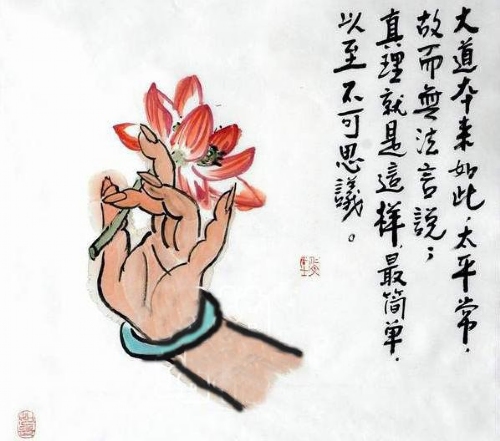 大道本来如此，太平常，
故而無法言說；
真理就是這样，最简单，
以至不可思議。